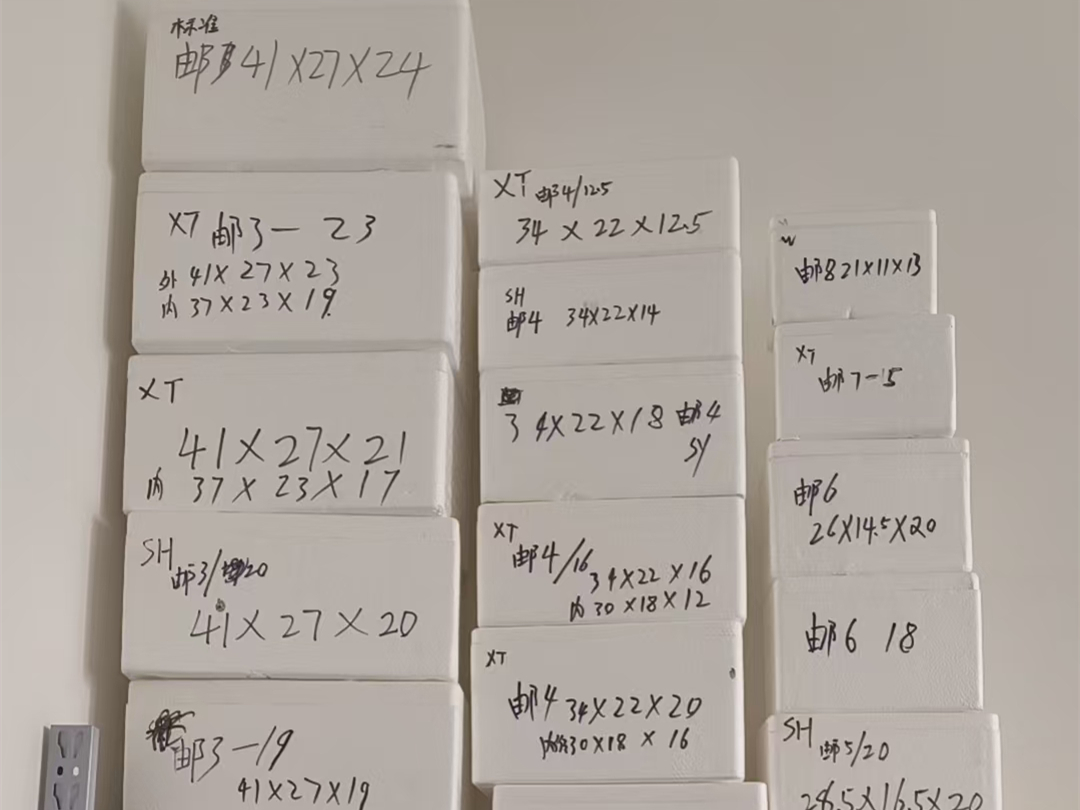 标准
邮 41×27×24
XT 邮3一 23
外 41×27×23
内 37×23×19
XT
41×27×21
内 37×23×17
SH
邮3/20
41×27×20
邮3一19
41×27×19
XT 邮4/12.5
34×22×12.5
SH
邮4 34×22×14
34×22×18 邮4
SY
XT
邮4/16
34×22×16
内30×18×12
XT
邮4 34×22×20
30×18×16
W
邮8 21×11×13
XT
邮7-15
邮6
26×14.5×20
邮6 18
SH
邮5/20
28.5×16.5×20